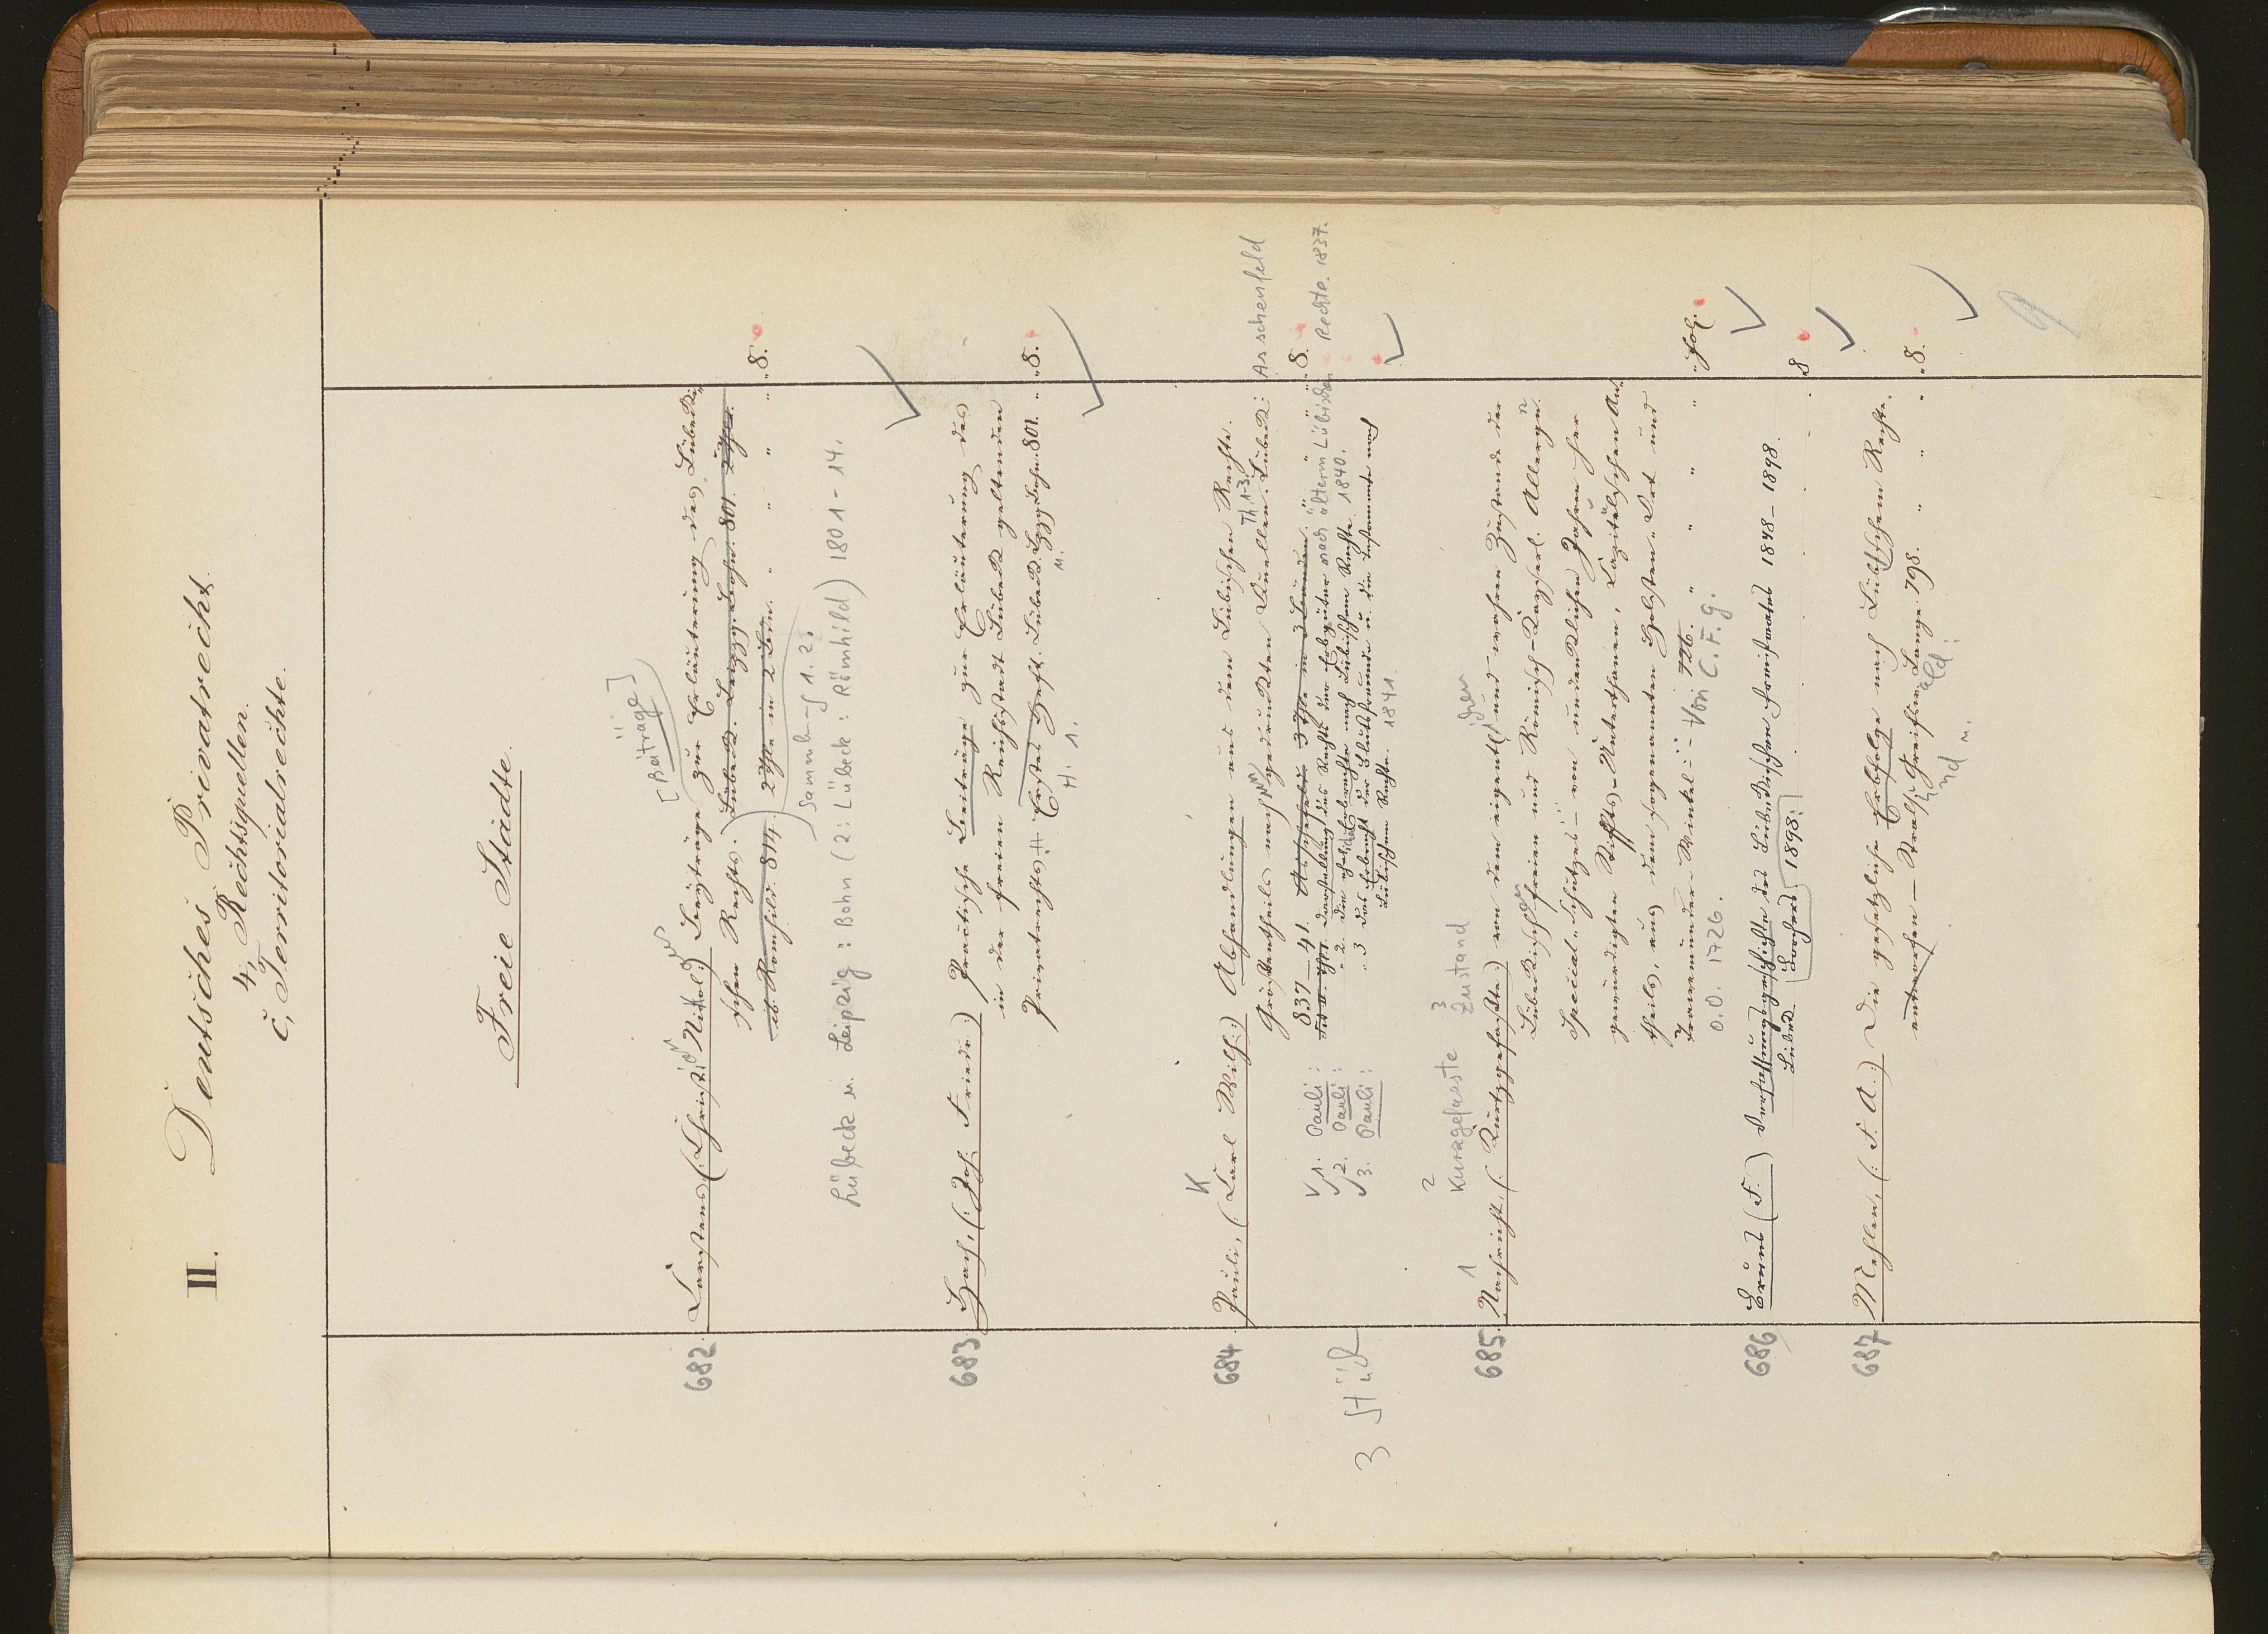 II. Deutsches Privatrecht.
4, Rechtsquellen.
c, Territorialrechte.
Freie Städte.
[Beiträge]
682. Carstens (: Christ. Nikol:) Beyträge zur Erläuterung des Lübecki-
schen Rechts. Lübeck. Leipzg. Bohn. 801. 2 Thle.
ib. Römhild. 814. 2 Thle in 2 Bdn. " " " " 8.
Sammlung 1. 2.
Lübeck u. Leipzig: Bohn (2: Lübeck: Römhild) 1801-14.
683 Hach, (: Joh. Friedr:) Practische Beiträge zur Erläuterung des
in der freien Reichsstadt Lübeck geltenden
Privatrechts. Erstes Heft. Lübeck. Leipzg Bohn. 801. " 8.
H. 1. u.
K
684. Pauli, (: Carl Wilh:) Abhandlungen aus dem Lübischen Rechte.
Th. 1-3.
Größtentheils nach ungedruckten Quellen. Lübeck: Asschenfeld
837-41. 3 Thle in 3 Bänden. " " 8.
1. Pauli: Darstellung des Rechts der Erbgüter nach älterm Lübischen Rechte. 1837.
2. Pauli: " 2. Die ehel. Erbrechte nach Lübischem Rechte 1840.
3. Pauli: " 3 Das Erbrecht der Blutsfreunde u. die Testamente nach
Lübischem Rechte. 1841.
3 Stück
2 Kurzgefasste 3 Zustand
685. 1 Nachricht, (: Kurtzgefaßte:) von dem eigentlichen und wahren Zustande der
Lübeckischen freien und Römisch-Kayserl. Allergn.
Special-Schutzes - von undenklichen Jahren her
gewürdigten Stiffts-Unterthanen, Capitulschen An-
theils, aus dem sogenannten Holsten-Ort und
Travemünder-Winkel: " 726. " " " " folg.
Von C. F. G.
O.O. 1726.
686 Bruns (F.) Verfassungsgeschichte des Lübeckischen Freistaates 1848-1898.
Lübeck Borchers 1898. 8
687 Mehlen, (: F. A.:) Die gesetzliche Erbfolge nach Lübschem Rechte.
Greifsw. Lange. 798. " " " 8.